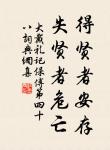 得賢者安存
失賢者危亡
大戴礼记保傅第四十
八詞典網集